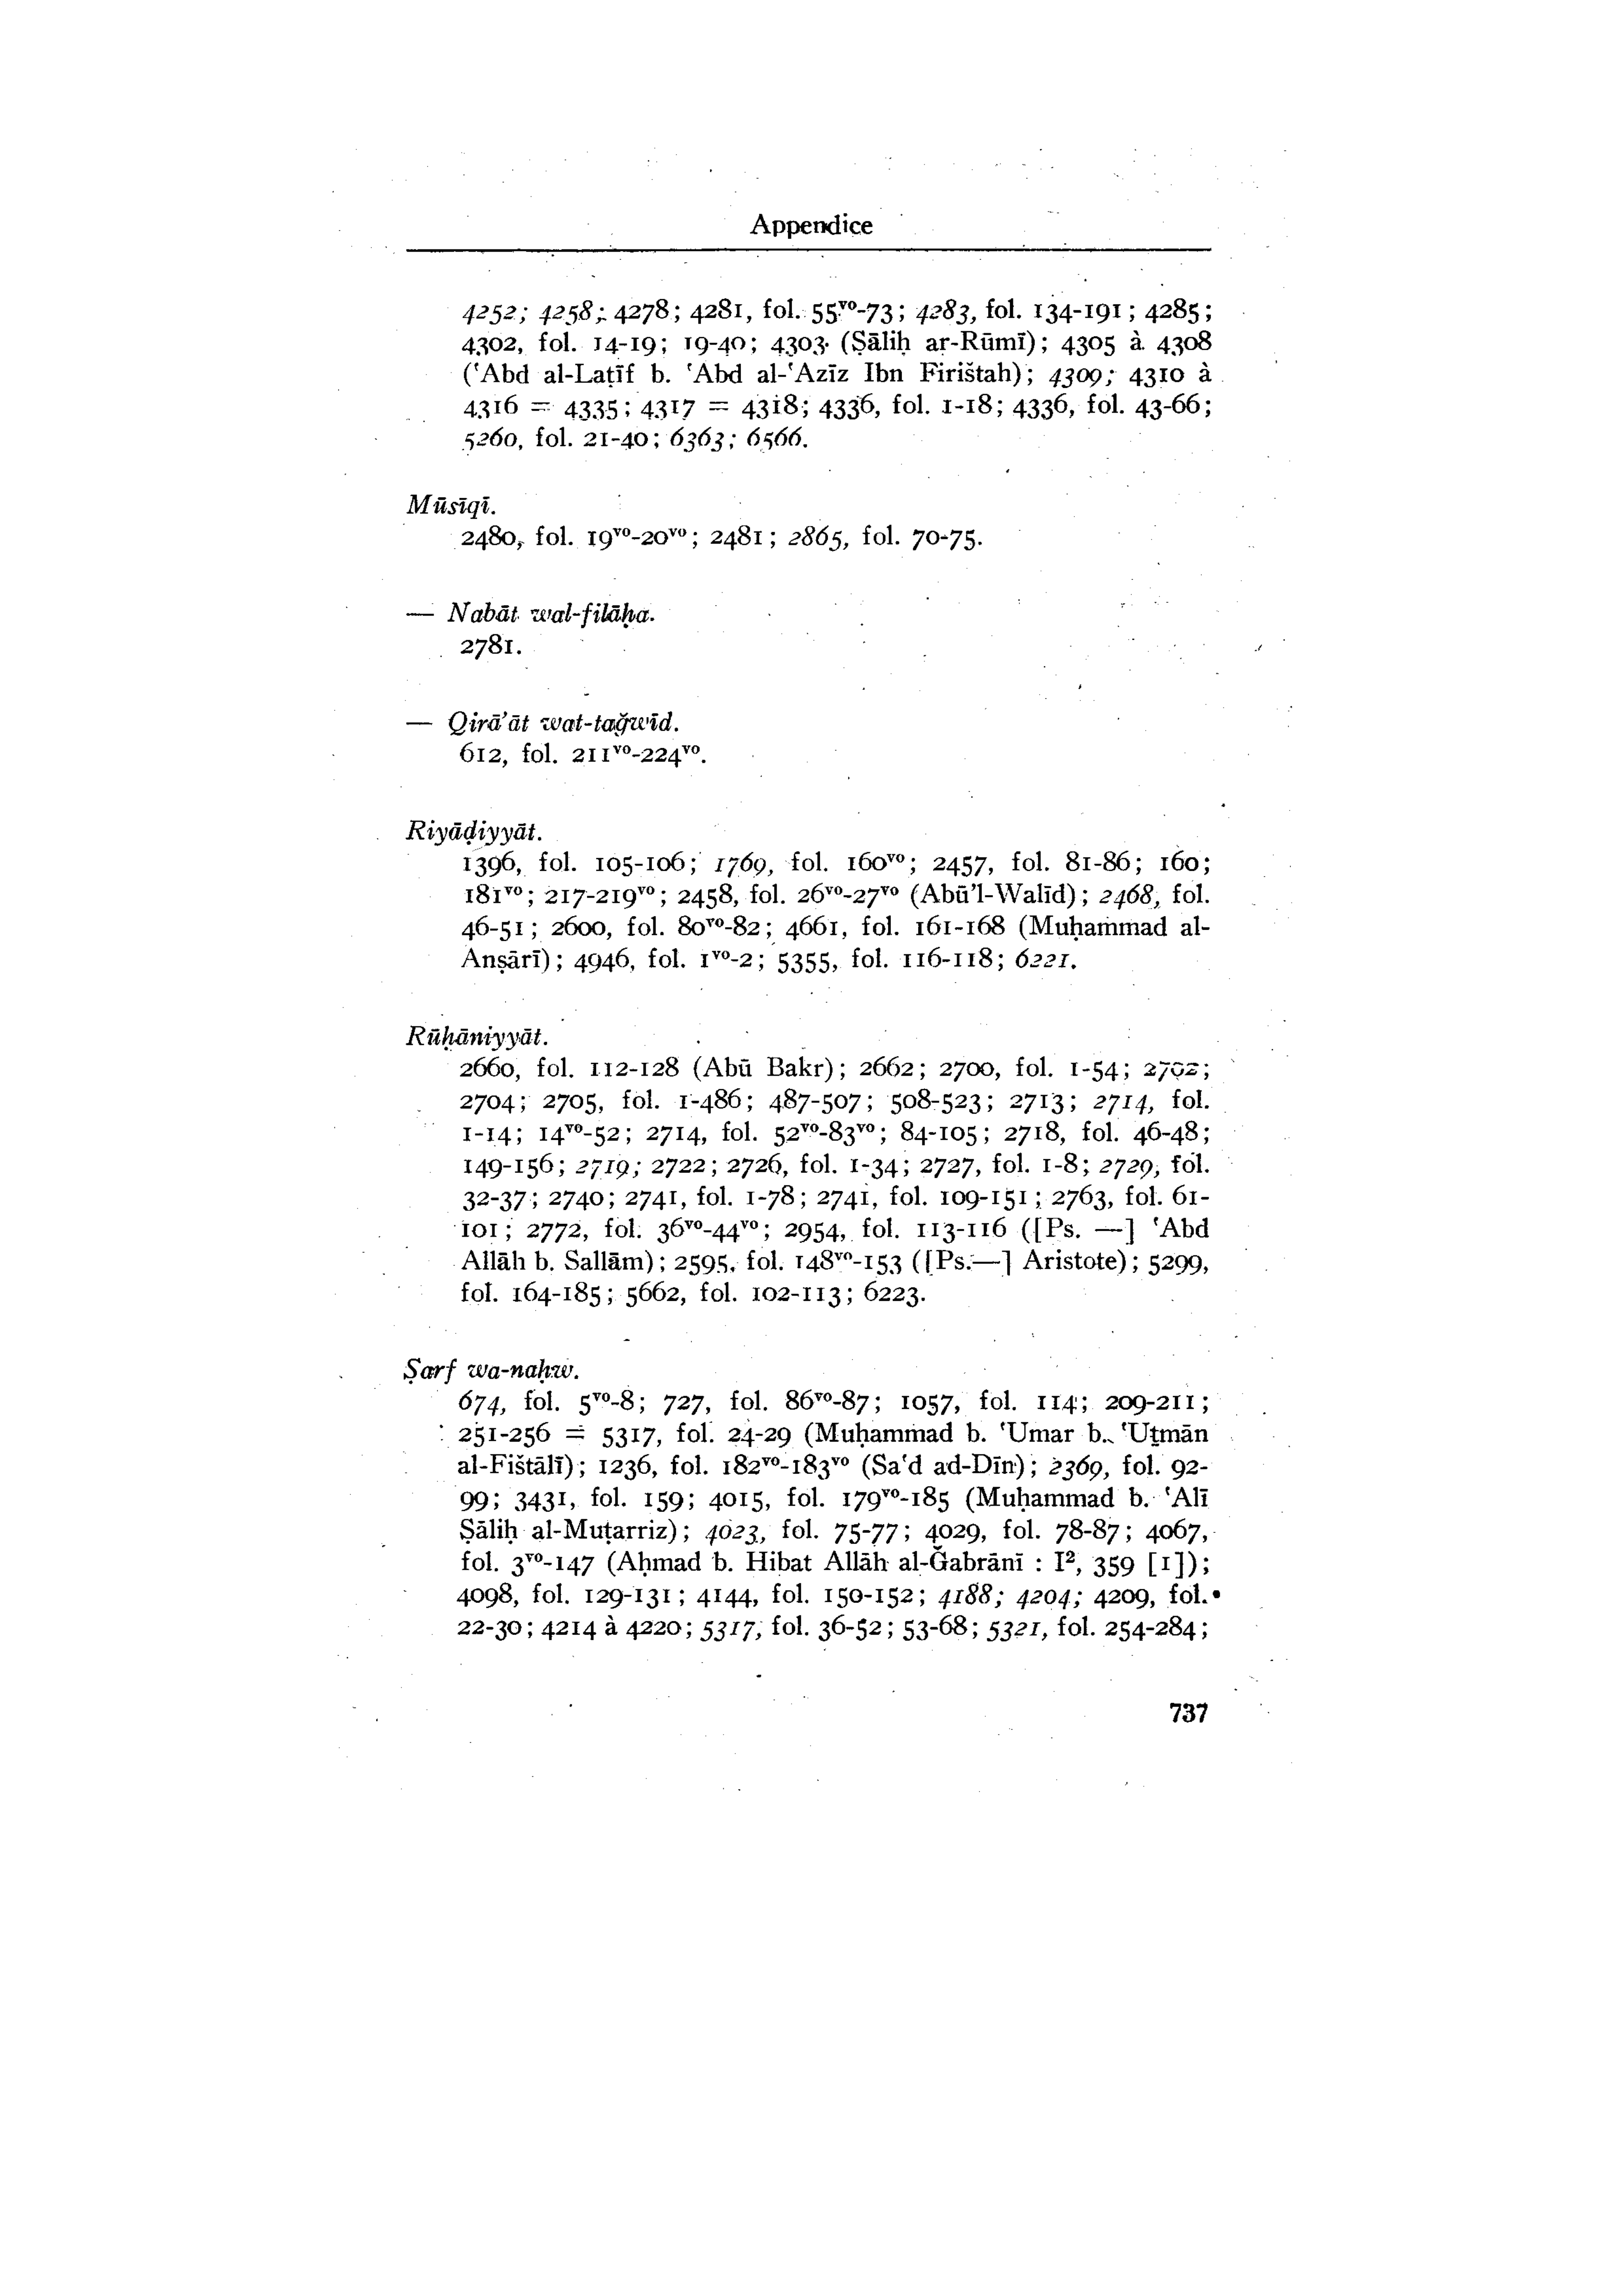 Appendice
4252; 4258; 4278; 4281, fol. 55vo-73; 4283, fol. 134-191; 4285;
4302, fol. 14-19; 19-40; 4303 (Ṣāliḥ ar-Rūmī); 4305 à 4308
(ʿAbd al-Laṭīf b. ʿAbd al-ʿAzīz Ibn Firištah); 4309; 4310 à
4316 = 4335; 4317 = 4318; 4336, fol. 1-18; 4336, fol. 43-66;
5260, fol. 21-40; 6363; 6566.
Mūsīqī.
2480, fol. 19vo-20vo; 2481; 2865, fol. 70-75.
— Nabāt wal-filāḥa.
2781.
— Qirā’āt wat-taǧwīd.
612, fol. 211vo-224vo.
Riyāḍiyyāt.
1396, fol. 105-106; 1769, fol. 160vo; 2457, fol. 81-86; 160;
181vo; 217-219vo; 2458, fol. 26vo-27vo (Abū’l-Walīd); 2468, fol.
46-51; 2600, fol. 80vo-82; 4661, fol. 161-168 (Muḥammad al-
Anṣārī); 4946, fol. 1vo-2; 5355, fol. 116-118; 6221.
Rūḥāniyyāt.
2660, fol. 112-128 (Abū Bakr); 2662; 2700, fol. 1-54; 2702;
2704; 2705, fol. 1-486; 487-507; 508-523; 2713; 2714, fol.
1-14; 14vo-52; 2714, fol. 52vo-83vo; 84-105; 2718, fol. 46-48;
149-156; 2719; 2722; 2726, fol. 1-34; 2727, fol. 1-8; 2729, fol.
32-37; 2740; 2741, fol. 1-78; 2741, fol. 109-151; 2763, fol. 61-
101; 2772, fol. 36vo-44vo; 2954, fol. 113-116 ([Ps. —] ʿAbd
Allāh b. Sallām); 2595, fol. 148vo-153 ([Ps.—] Aristote); 5299,
fol. 164-185; 5662, fol. 102-113; 6223.
Ṣarf wa-naḥw.
674, fol. 5vo-8; 727, fol. 86vo-87; 1057, fol. 114; 209-211;
251-256 = 5317, fol. 24-29 (Muḥammad b. ʿUmar b. ʿUṯmān
al-Fištālī); 1236, fol. 182vo-183vo (Saʿd ad-Dīn); 2369, fol. 92-
99; 3431, fol. 159; 4015, fol. 179vo-185 (Muḥammad b. ʿAlī
Ṣāliḥ al-Muṭarriz); 4023, fol. 75-77; 4029, fol. 78-87; 4067,
fol. 3vo-147 (Aḥmad b. Hibat Allāh al-Ǧabrānī : I², 359 [1]);
4098, fol. 129-131; 4144, fol. 150-152; 4188; 4204; 4209, fol.
22-30; 4214 à 4220; 5317, fol. 36-52; 53-68; 5321, fol. 254-284;
737